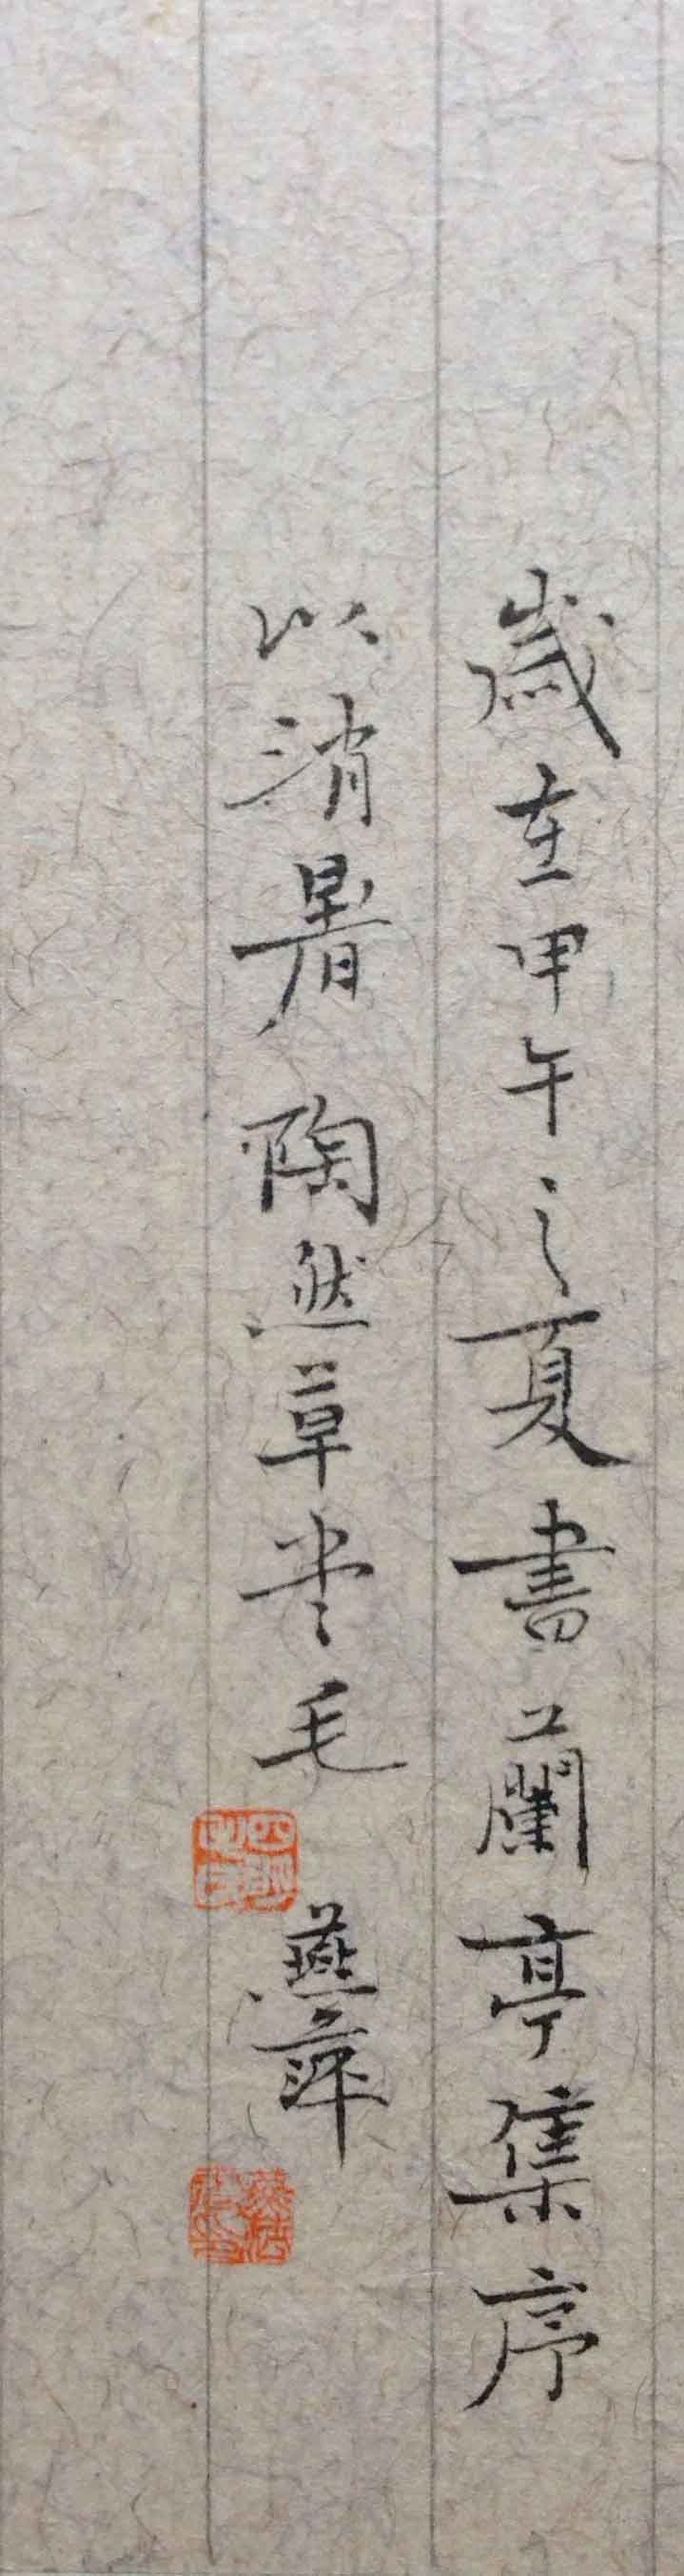 歲在甲午之夏書蘭亭集序
以消暑陶然草堂毛燕萍